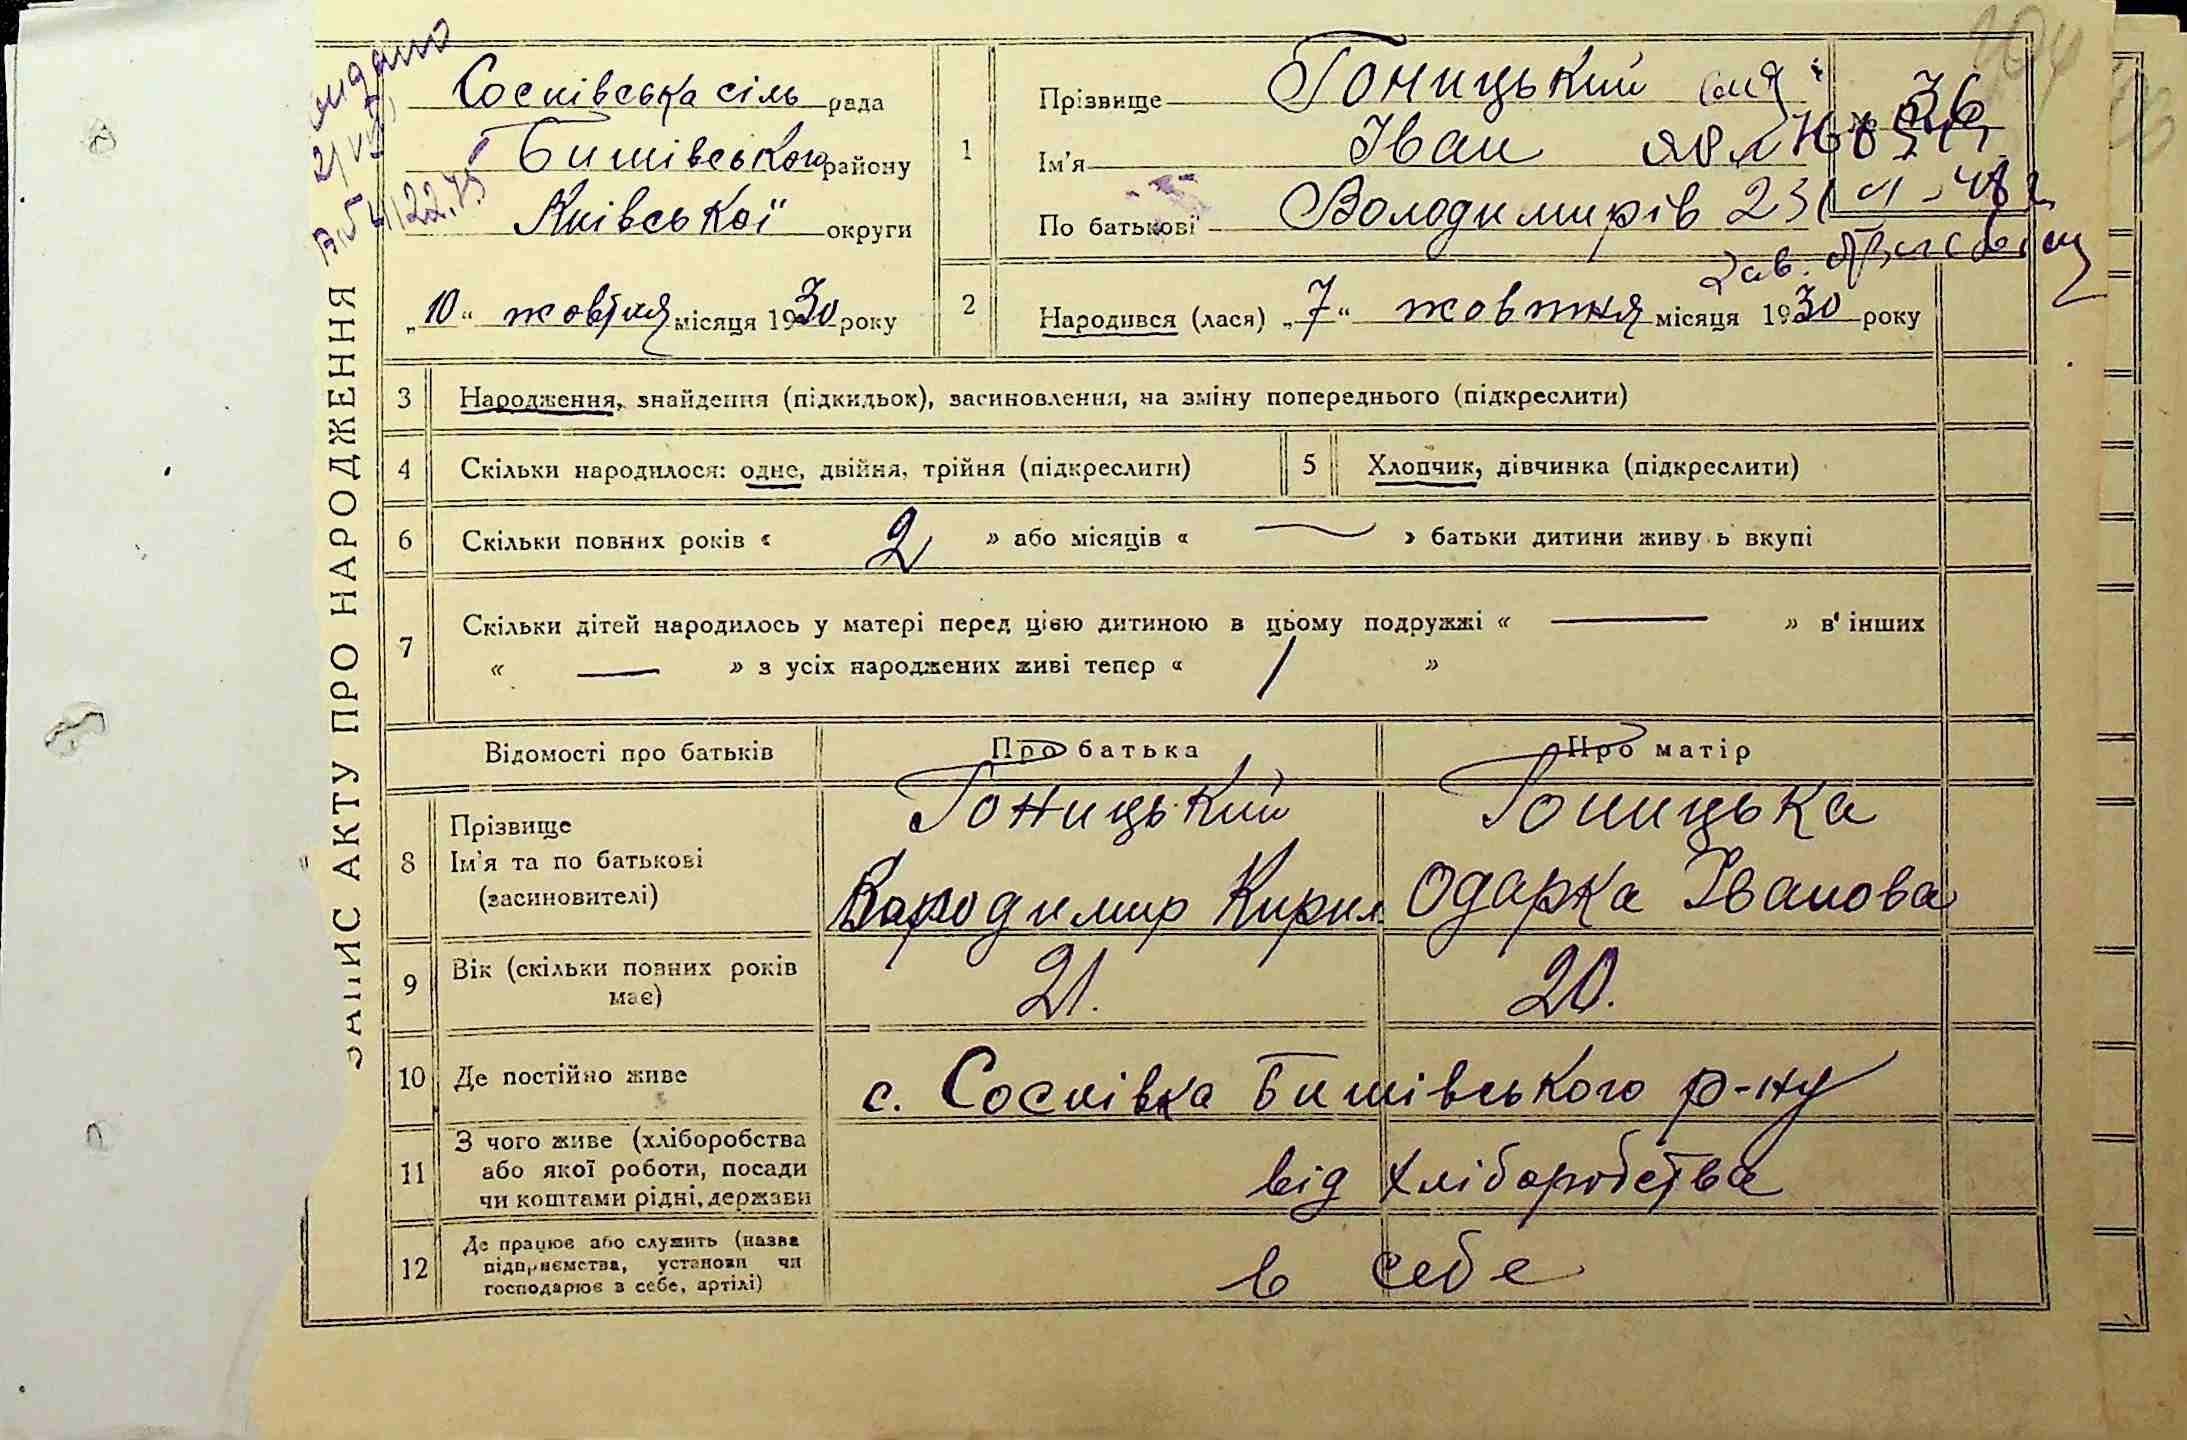 ЗАПИС АКТУ ПРО НАРОДЖЕННЯ
видано
Соснівська сіль рада
Бишівського району
Київської округи
„10“ жовтня місяця 1930 року
1
Прізвище Гоницький
Ім'я Іван
По батькові Володимирів 23/
36
2
Народився (лася) „7“ жовтня місяця 1930 року
3 Народження, знайдення (підкидьок), засиновлення, на зміну попереднього (підкреслити)
4 Скільки народилося: одне, двійня, трійня (підкреслити)
5 Хлопчик, дівчинка (підкреслити)
6 Скільки повних років « 2 » або місяців « — » батьки дитини живуть вкупі
7 Скільки дітей народилось у матері перед цією дитиною в цьому подружжі « — » в інших
« — » з усіх народжених живі тепер « 1 »
Відомості про батьків Про батька Про матір
8 Прізвище Гоницький Гоницька
Ім'я та по батькові
(засиновителі) Володимир Кирил. Одарка Іванова
9 Вік (скільки повних років
має) 21. 20.
10 Де постійно живе с. Соснівка Бишівського р-ну
11 З чого живе (хліборобства
або якої роботи, посади
чи коштами рідні, держави від хліборобства
12 Де працює або служить (назва
підприємства, установи чи
господарює з себе, артілі) в себе